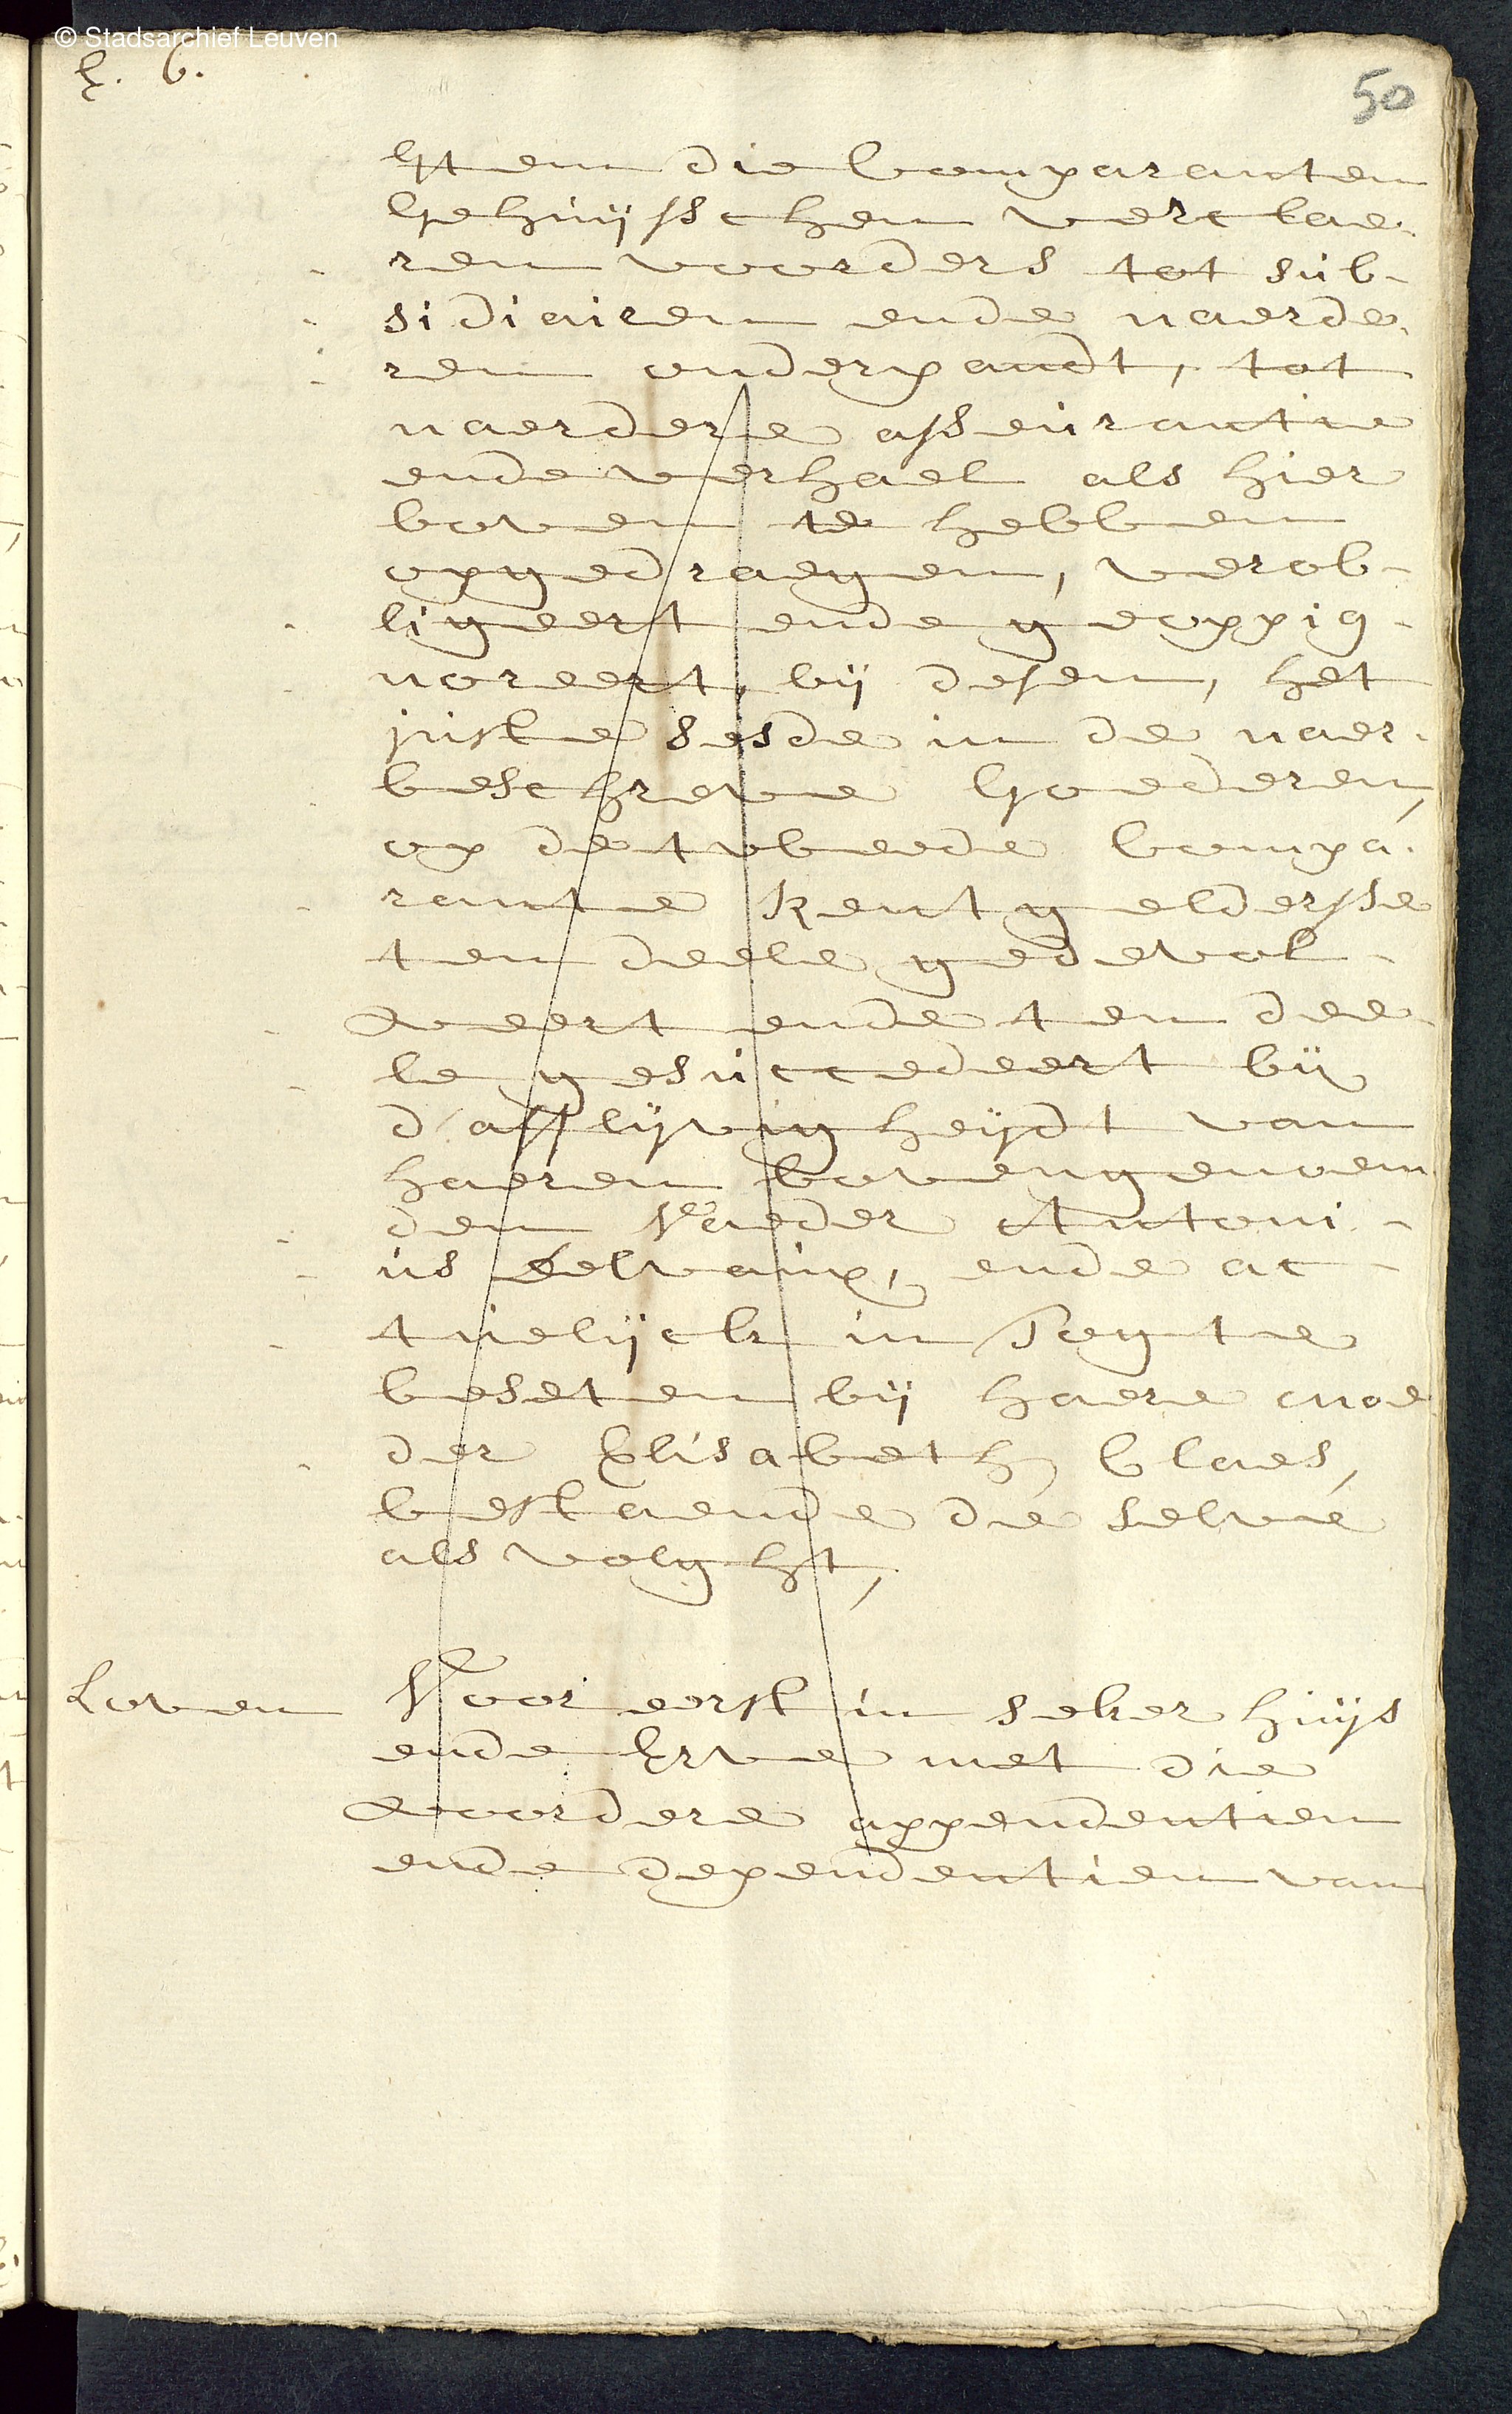 © Stadsarchief Leuven
h. 6.
50
Item die Comparanten
Gehuijsschen verclae-
ren voorders tot sub-
sidiairen ende naerde-
ren onderpandt, tot
naerdere asseurantie
ende verhael als hier
boven te hebben
opgedraegen, verob-
ligeert ende geoppig-
noreert, bij desen, het
juste sesde in de naer-
beschreve Goederen,
op de tweede Compa-
rante Rentgeldersse
ten deele gedevol-
veert ende ten dee-
le gesuccedeert bij
d'afflijvigheijdt van
haeren bovengenoem
den Vaeder Antoni-
us Delvaux, ende ac-
tuelijck in Togte
beseten bij haere moe
der Elisabeth Claes,
bestaende die selve
als volght,
Loven
Voor eerst in seker huijs
ende Erve met die
voordere appendentien
ende dependentien van